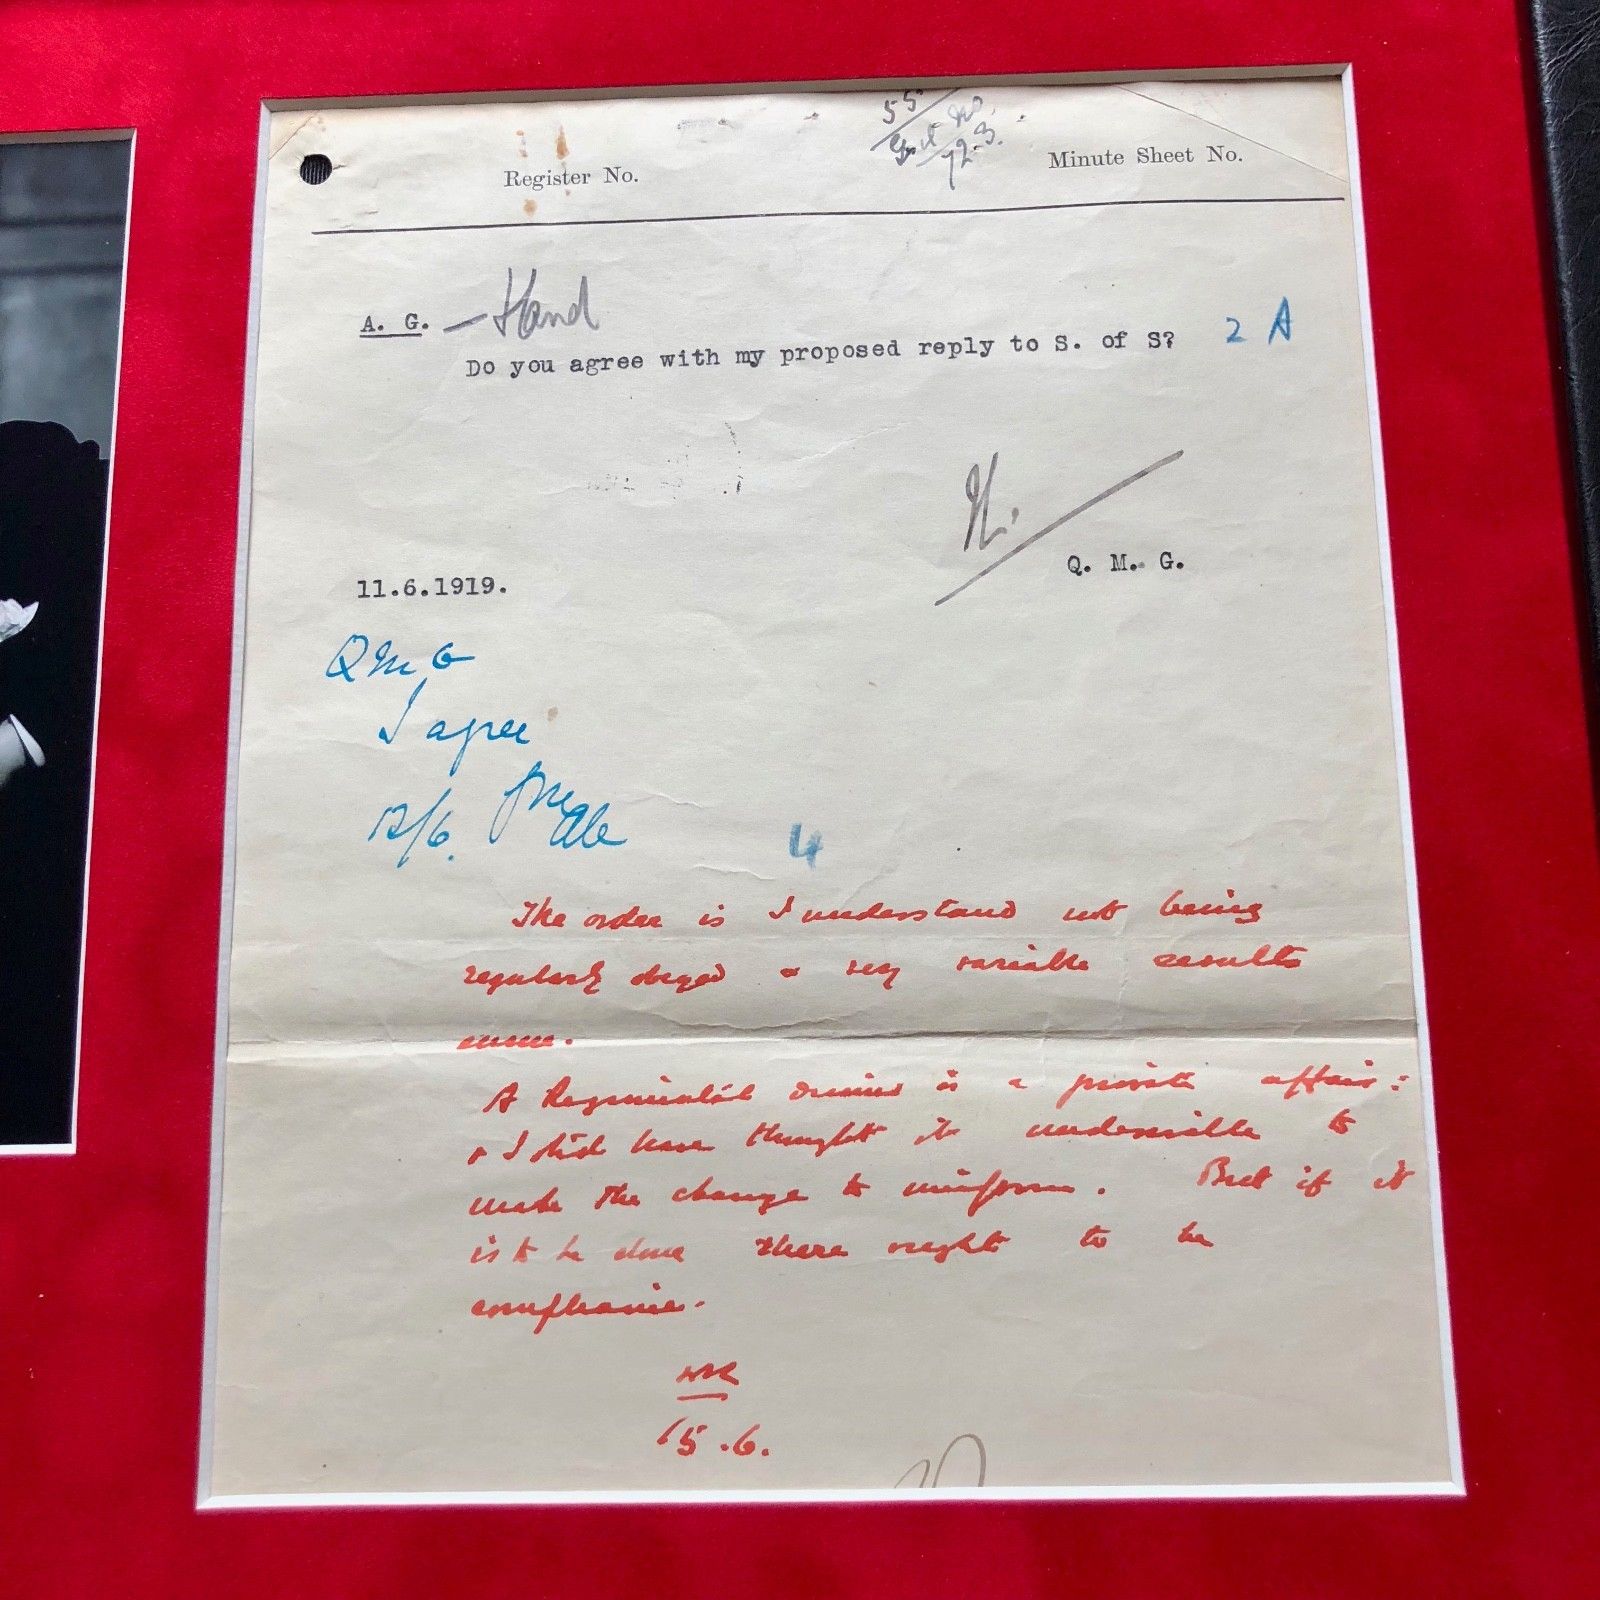 55
Register No.
Minute Sheet No.
A. G. — Hand
Do you agree with my proposed reply to S. of S? 2 A
H.
Q. M. G.
11.6.1919.
QMG
I agree
12/6.
4
The order is I understand not being
regularly obeyed & very variable results
ensue.
A Regimental dinner is a private affair:
& I shd have thought it undesirable to
make the change to uniform. But if it
is to be done there ought to be
compliance.
WSC
15.6.